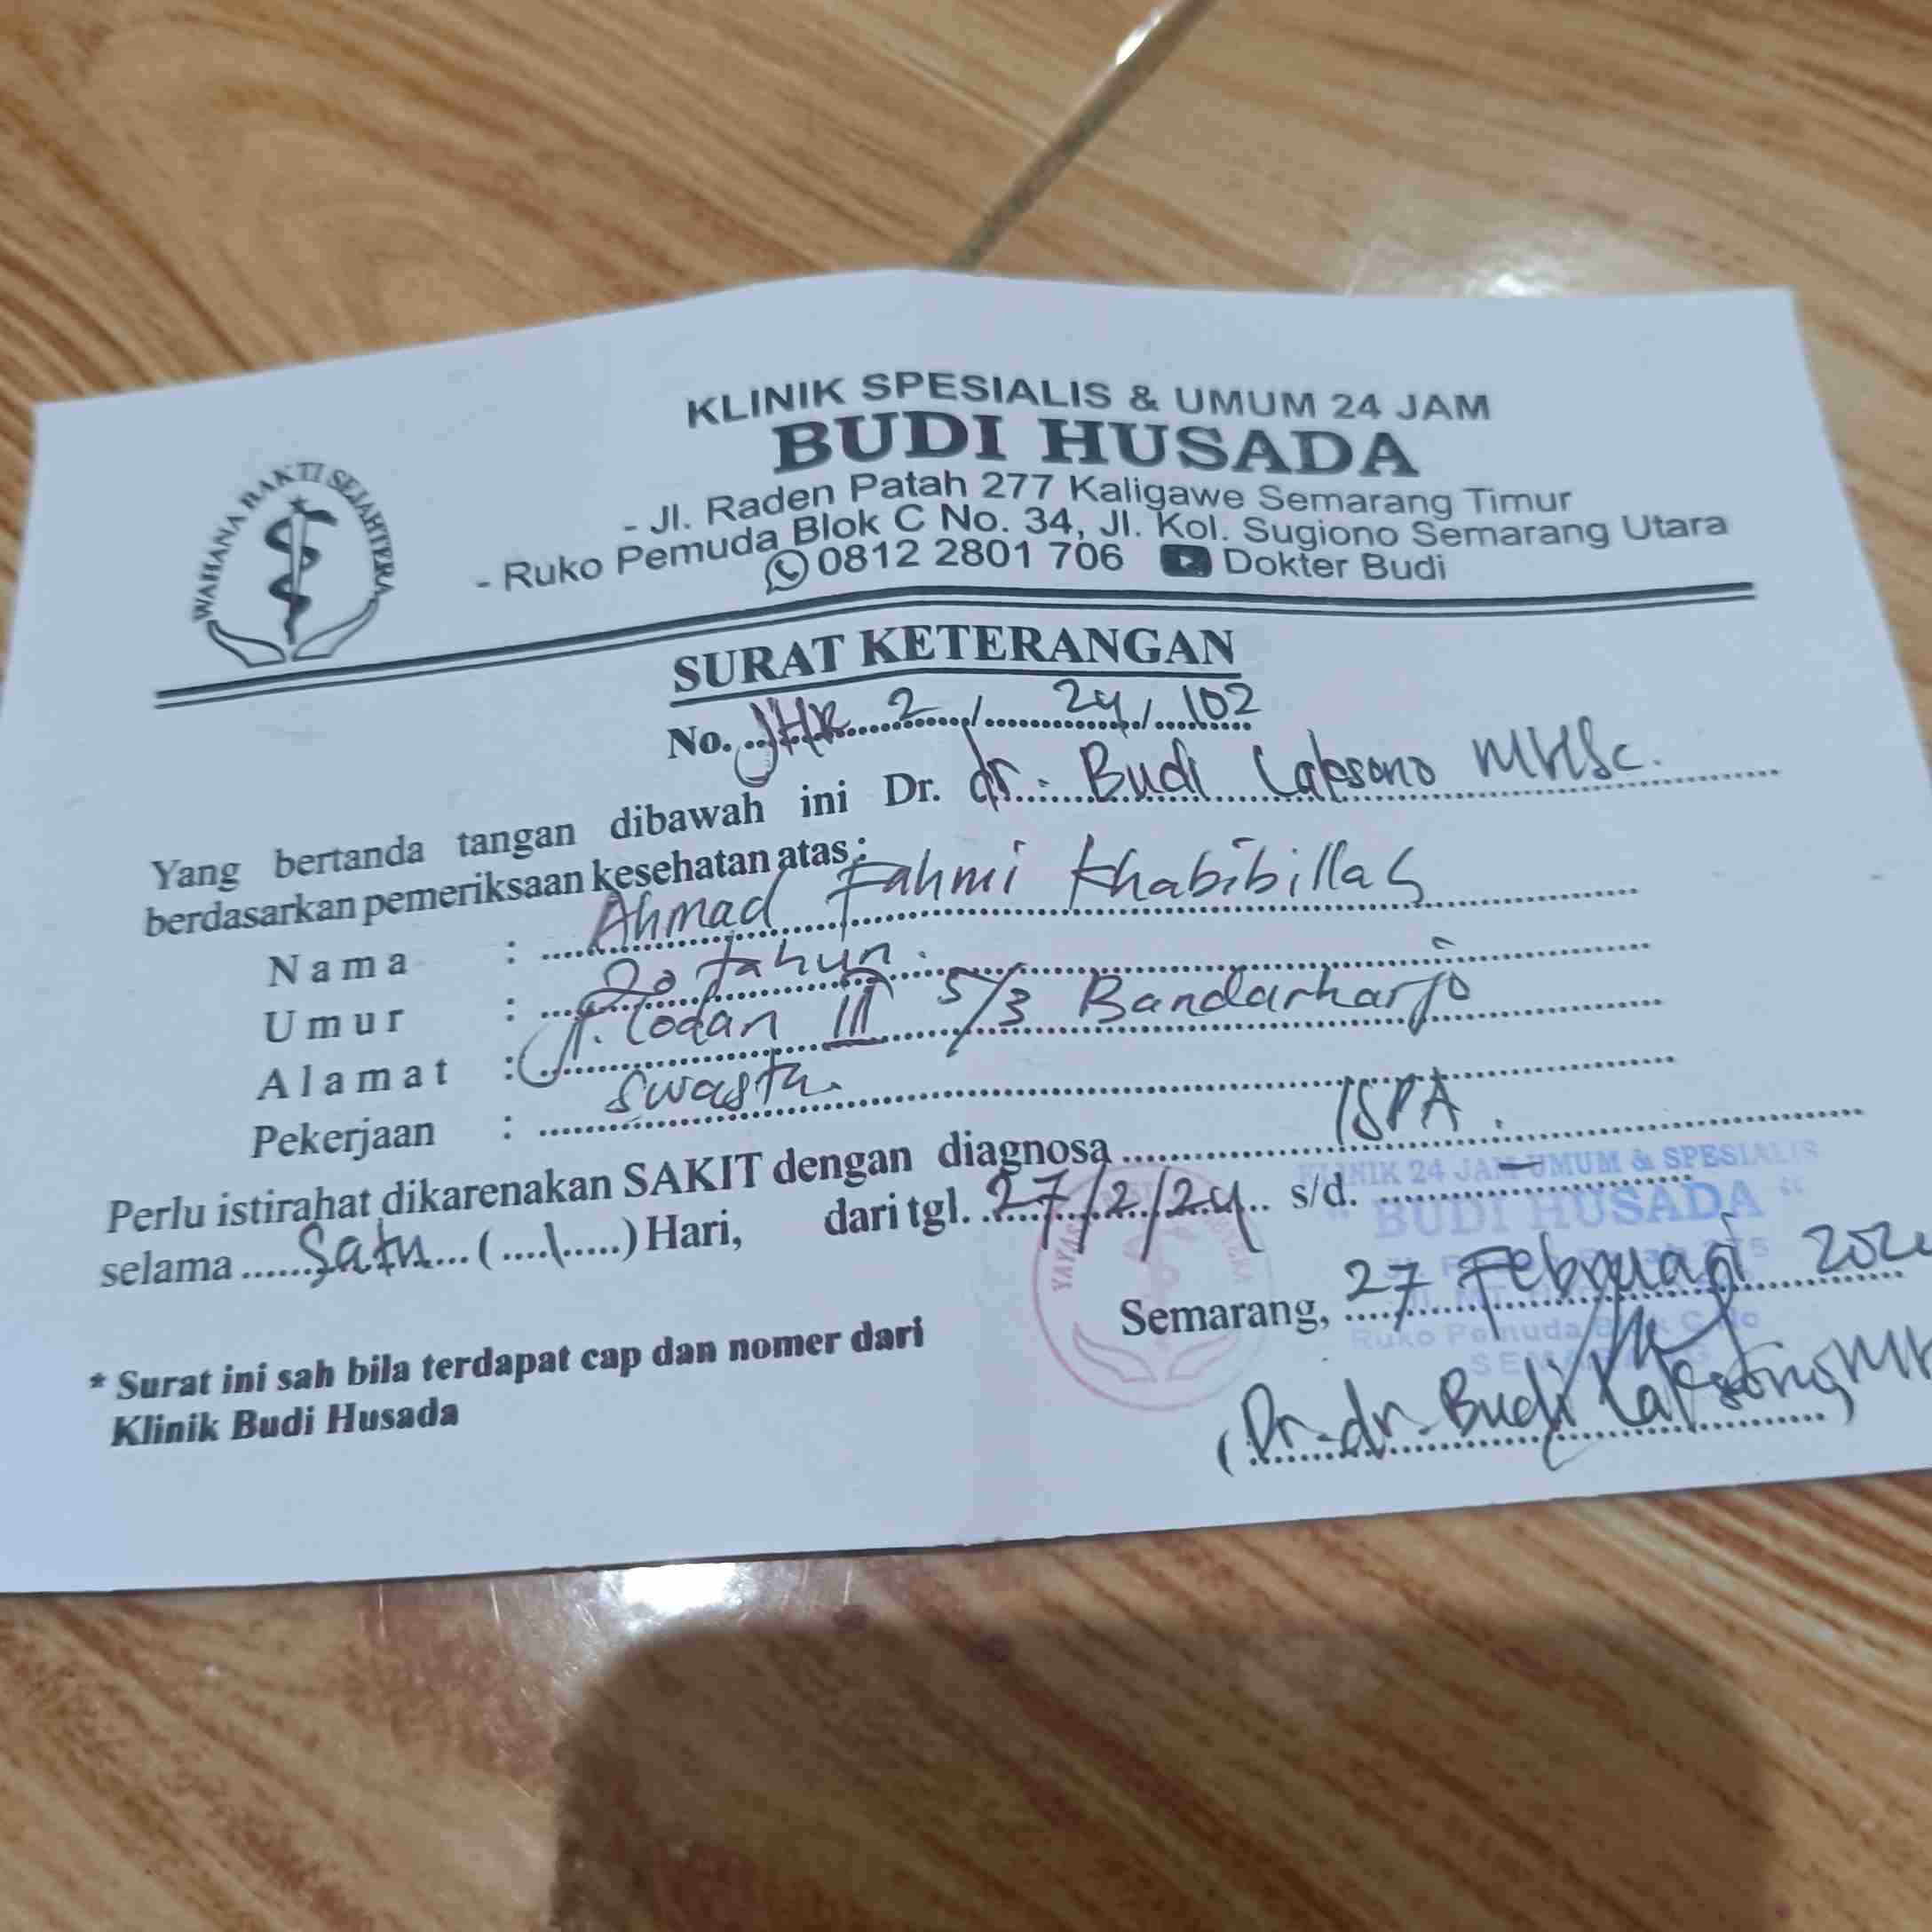 WAHANA BAKTI SEJAHTERA
KLINIK SPESIALIS & UMUM 24 JAM
BUDI HUSADA
- Jl. Raden Patah 277 Kaligawe Semarang Timur
- Ruko Pemuda Blok C No. 34, Jl. Kol. Sugiono Semarang Utara
0812 2801 706 Dokter Budi
SURAT KETERANGAN
No. 2 / 24 / 102
Yang bertanda tangan dibawah ini Dr. dr. Budi Laksono MHSc.
berdasarkan pemeriksaan kesehatan atas :
Nama : Ahmad Fahmi Khabibillah
Umur : 20 tahun.
Alamat : Jl. Lodan III 5/3 Bandarharjo
Pekerjaan : Swasta.
Perlu istirahat dikarenakan SAKIT dengan diagnosa ISPA.
selama Satu (1) Hari, dari tgl. 27/2/24 s/d.
KLINIK 24 JAM UMUM & SPESIALIS
" BUDI HUSADA "
Ruko Pemuda Blok C No
SEMARANG
Semarang, 27 Februari
* Surat ini sah bila terdapat cap dan nomer dari
Klinik Budi Husada
(Dr. dr. Budi Laksono, MH